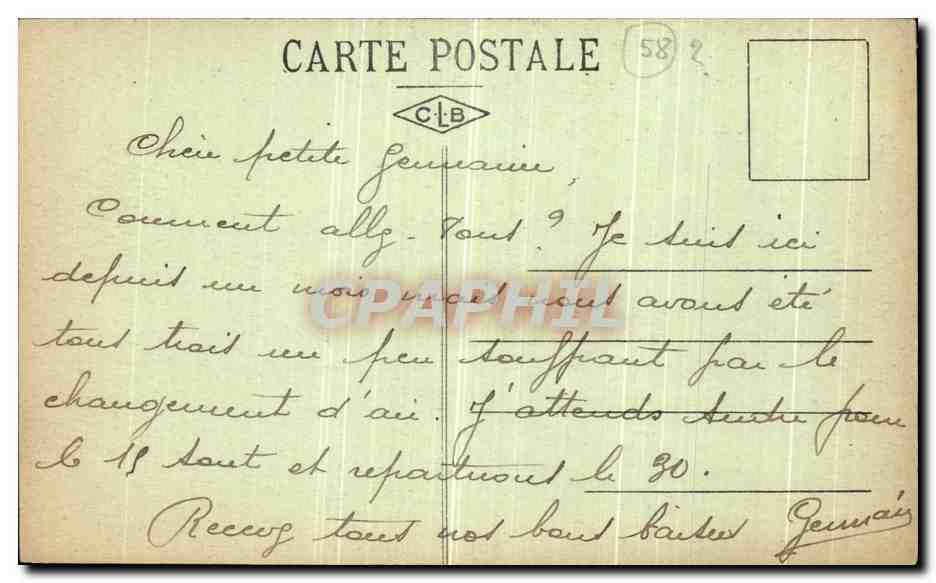 CARTE POSTALE
58 2
C.L.B
Chère petite Germaine,
Comment allez-vous? Je suis ici
depuis un mois mais nous avons été
CPAPHIL
tous trois un peu souffrant par le
changement d'air. J'attends André pour
le 15 aout et repartirons le 30.
Recevez tous nos bons baisers Germain